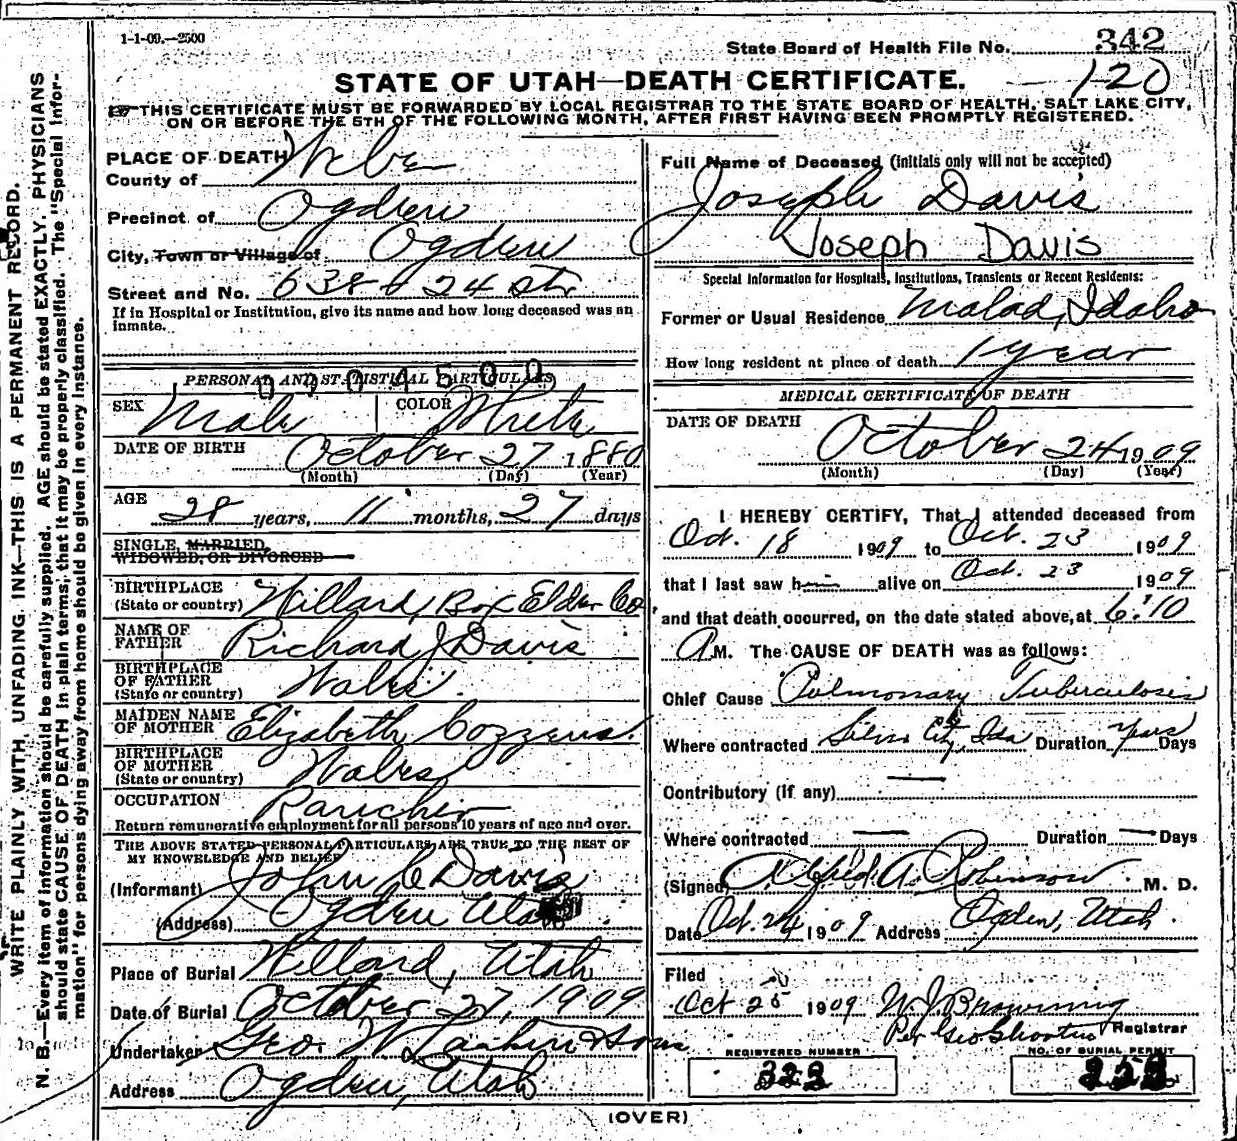 1-1-09.—2500
State Board of Health File No. 342
120
STATE OF UTAH—DEATH CERTIFICATE.
☞THIS CERTIFICATE MUST BE FORWARDED BY LOCAL REGISTRAR TO THE STATE BOARD OF HEALTH, SALT LAKE CITY,
ON OR BEFORE THE 5TH OF THE FOLLOWING MONTH, AFTER FIRST HAVING BEEN PROMPTLY REGISTERED.
WRITE PLAINLY WITH, UNFADING INK—THIS IS A PERMANENT RECORD.
N. B.—Every item of information should be carefully supplied. AGE should be stated EXACTLY. PHYSICIANS
should state CAUSE OF DEATH in plain terms, that it may be properly classified. The "Special Infor-
mation" for persons dying away from home should be given in every instance.
PLACE OF DEATH
County of Weber
Precinct of Ogden
City, Town or Village of Ogden
Street and No. 638 24 St.
If in Hospital or Institution, give its name and how long deceased was an
inmate.
PERSONAL AND STATISTICAL PARTICULARS
SEX Male COLOR White
DATE OF BIRTH October 27 1880
(Month) (Day) (Year)
AGE 28 years, 11 months, 27 days
SINGLE, MARRIED,
WIDOWED, OR DIVORCED
BIRTHPLACE
(State or country) Willard, Box Elder Co
NAME OF
FATHER Richard J Davis
BIRTHPLACE
OF FATHER
(State or country) Wales
MAIDEN NAME
OF MOTHER Elizabeth Cozzens
BIRTHPLACE
OF MOTHER
(State or country) Wales
OCCUPATION Rancher
Return remunerative employment for all persons 10 years of age and over.
THE ABOVE STATED PERSONAL PARTICULARS ARE TRUE TO THE BEST OF
MY KNOWLEDGE AND BELIEF
(Informant) John C Davis
(Address) Ogden Utah
Place of Burial Willard, Utah
Date of Burial October 27, 1909
Undertaker Geo. W Larkin & Sons
Address Ogden, Utah
Full Name of Deceased (initials only will not be accepted)
Joseph Davis
Joseph Davis
Special Information for Hospitals, Institutions, Transients or Recent Residents:
Former or Usual Residence Malad, Idaho
How long resident at place of death 1 year
MEDICAL CERTIFICATE OF DEATH
DATE OF DEATH
October 24 1909
(Month) (Day) (Year)
I HEREBY CERTIFY, That I attended deceased from
Oct. 18 1909 to Oct. 23 1909
that I last saw him alive on Oct. 23 1909
and that death occurred, on the date stated above, at 6:10
A M. The CAUSE OF DEATH was as follows:
Chief Cause Pulmonary Tuberculosis
Where contracted Silver City, Ida Duration years Days
Contributory (if any)
Where contracted — Duration — Days
(Signed) Alfred A. Robinson M. D.
Date Oct. 24 1909 Address Ogden, Utah
Filed
Oct 25 1909 W J Browning
Per Geo Shorten Registrar
REGISTERED NUMBER
323
NO. OF BURIAL PERMIT
(OVER)